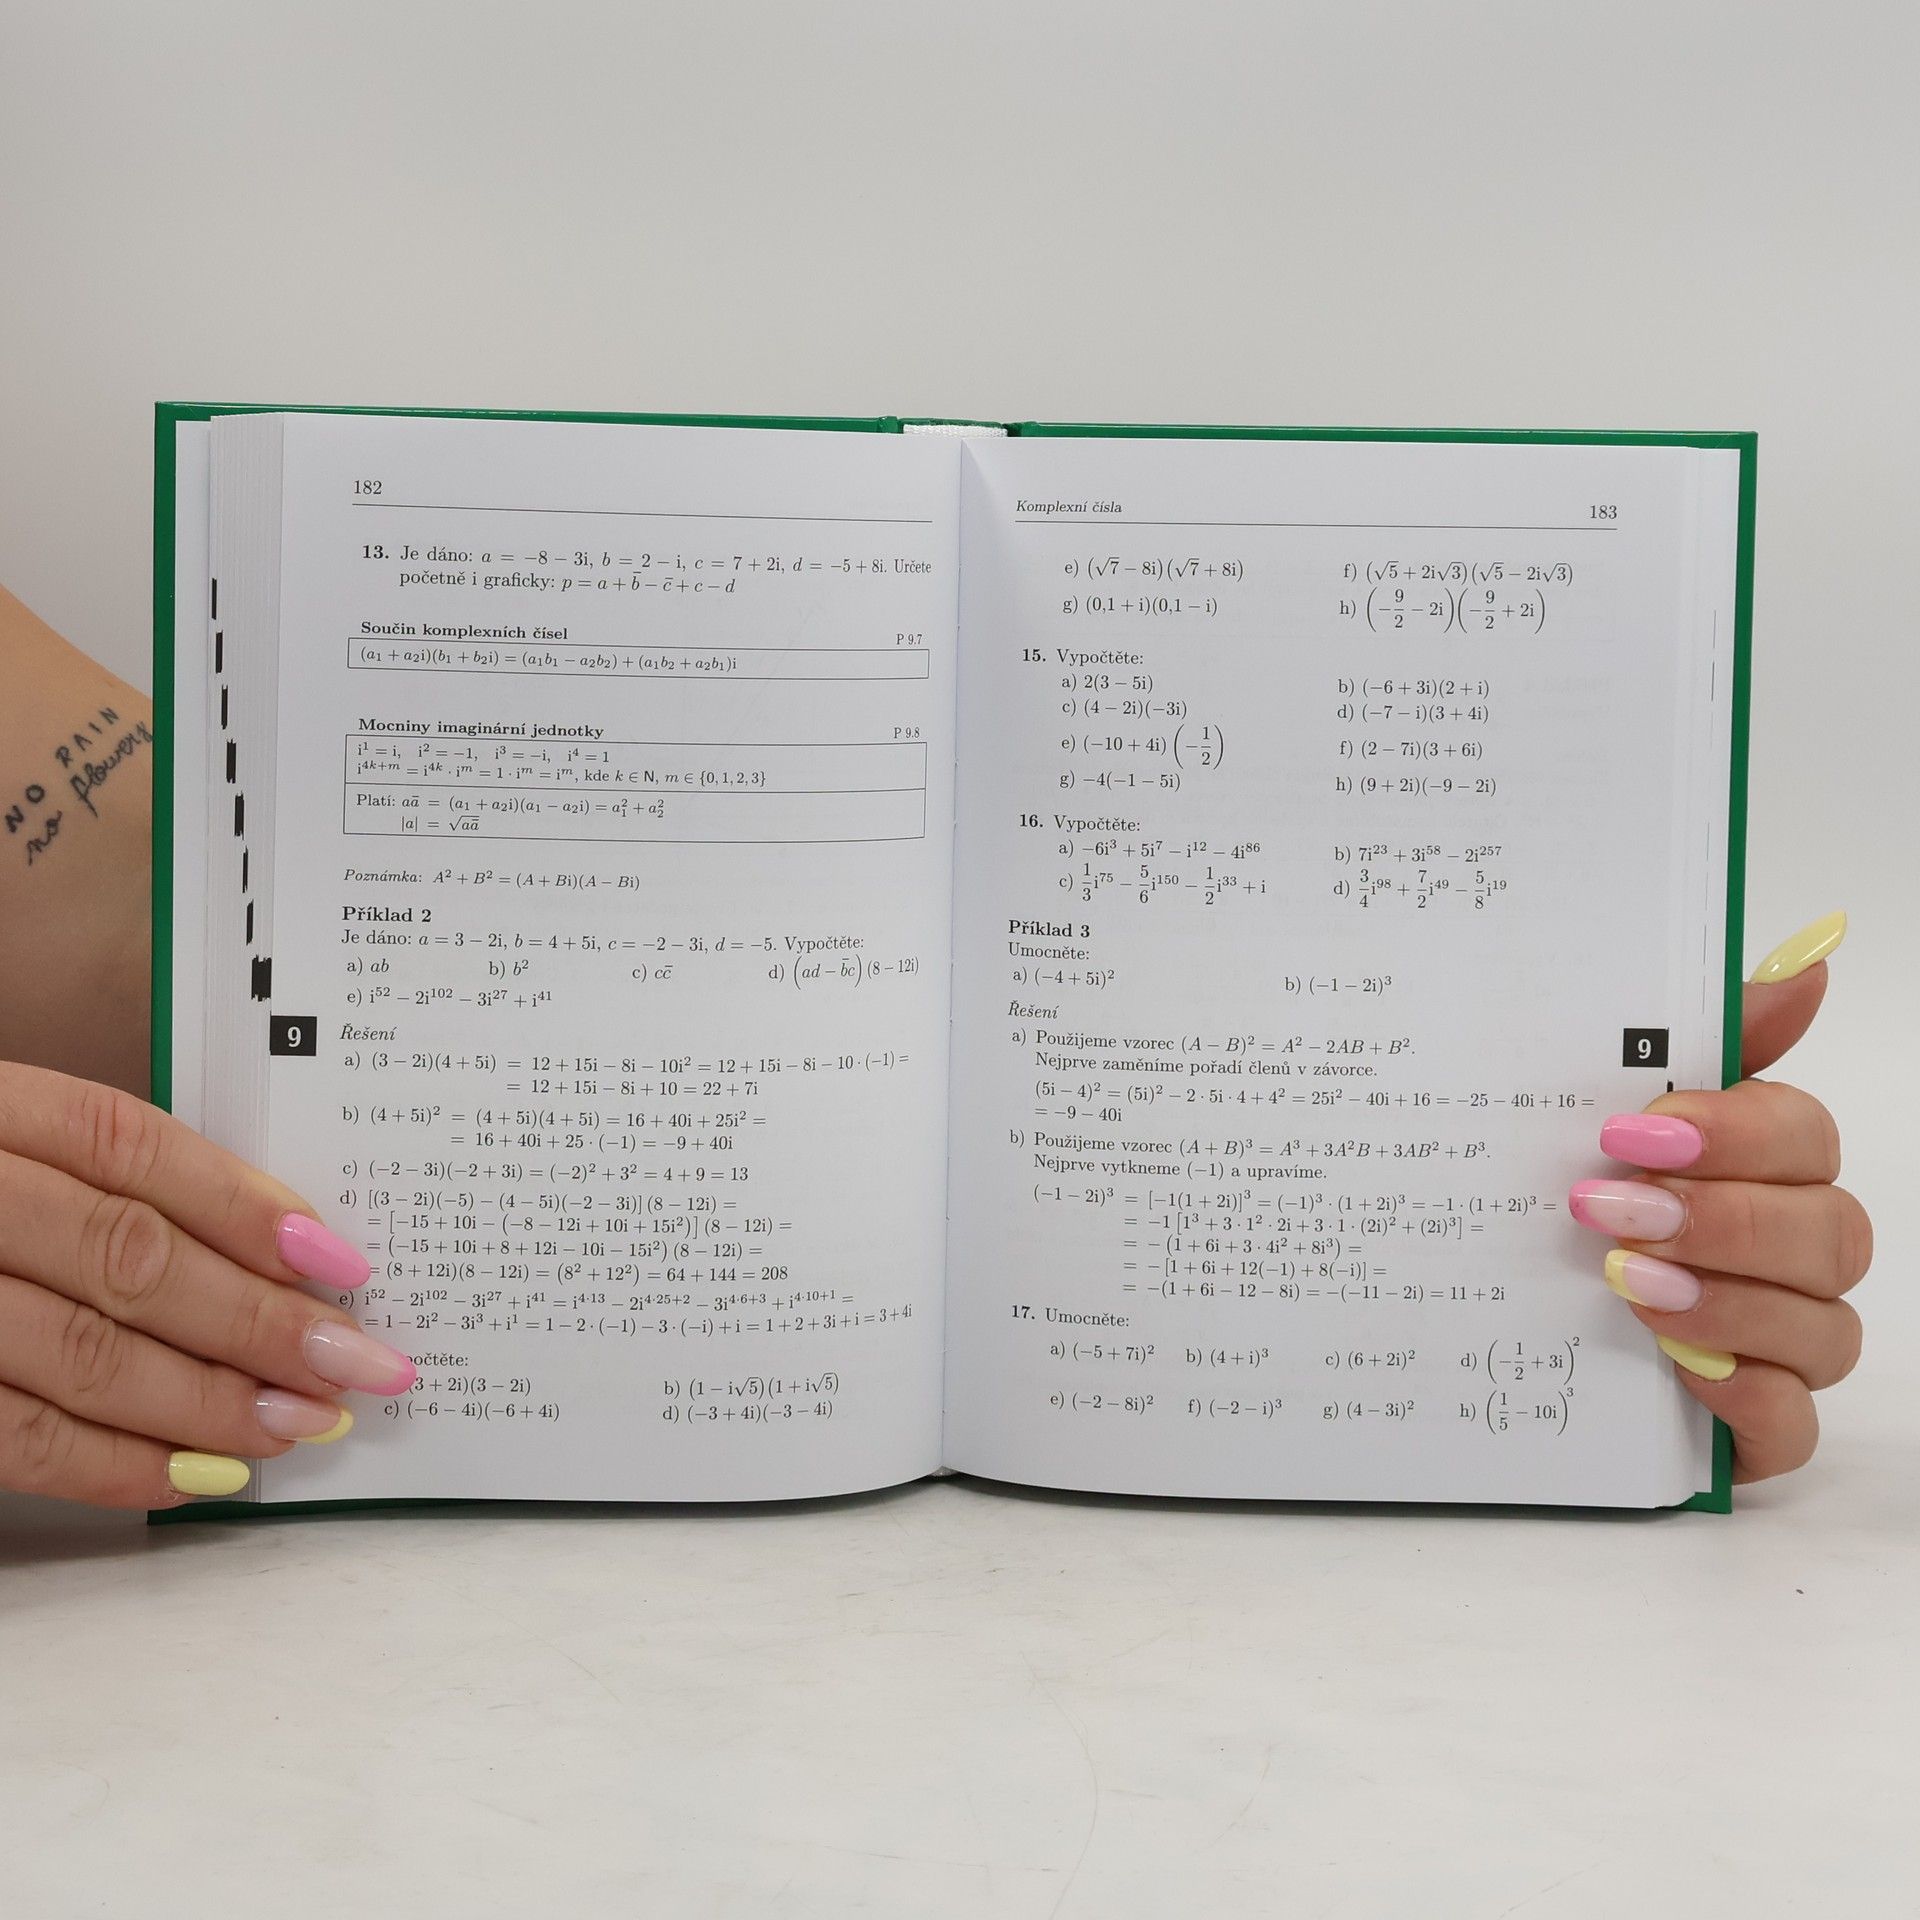 NO RAIN
no flowers
182
13. Je dáno: a = −8 − 3i, b = 2 − i, c = 7 + 2i, d = −5 + 8i. Určete
početně i graficky: p = a + b̄ − c̄ + c − d
Součin komplexních čísel P 9.7
(a₁ + a₂i)(b₁ + b₂i) = (a₁b₁ − a₂b₂) + (a₁b₂ + a₂b₁)i
Mocniny imaginární jednotky P 9.8
i¹ = i, i² = −1, i³ = −i, i⁴ = 1
i⁴ᵏ⁺ᵐ = i⁴ᵏ · iᵐ = 1 · iᵐ = iᵐ, kde k ∈ N, m ∈ {0, 1, 2, 3}
Platí: aā = (a₁ + a₂i)(a₁ − a₂i) = a₁² + a₂²
|a| = √aā
Poznámka: A² + B² = (A + Bi)(A − Bi)
Příklad 2
Je dáno: a = 3 − 2i, b = 4 + 5i, c = −2 − 3i, d = −5. Vypočtěte:
a) ab b) b² c) cc̄ d) (ad − b̄c)(8 − 12i)
e) i⁵² − 2i¹⁰² − 3i²⁷ + i⁴¹
9
Řešení
a) (3 − 2i)(4 + 5i) = 12 + 15i − 8i − 10i² = 12 + 15i − 8i − 10 · (−1) =
= 12 + 15i − 8i + 10 = 22 + 7i
b) (4 + 5i)² = (4 + 5i)(4 + 5i) = 16 + 40i + 25i² =
= 16 + 40i + 25 · (−1) = −9 + 40i
c) (−2 − 3i)(−2 + 3i) = (−2)² + 3² = 4 + 9 = 13
d) [(3 − 2i)(−5) − (4 − 5i)(−2 − 3i)] (8 − 12i) =
= [−15 + 10i − (−8 − 12i + 10i + 15i²)] (8 − 12i) =
= (−15 + 10i + 8 + 12i − 10i − 15i²) (8 − 12i) =
= (8 + 12i)(8 − 12i) = (8² + 12²) = 64 + 144 = 208
e) i⁵² − 2i¹⁰² − 3i²⁷ + i⁴¹ = i⁴·¹³ − 2i⁴·²⁵⁺² − 3i⁴·⁶⁺³ + i⁴·¹⁰⁺¹ =
= 1 − 2i² − 3i³ + i¹ = 1 − 2 · (−1) − 3 · (−i) + i = 1 + 2 + 3i + i = 3 + 4i
počtěte:
(3 + 2i)(3 − 2i) b) (1 − i√5)(1 + i√5)
c) (−6 − 4i)(−6 + 4i) d) (−3 + 4i)(−3 − 4i)
Komplexní čísla 183
e) (√7 − 8i)(√7 + 8i) f) (√5 + 2i√3)(√5 − 2i√3)
g) (0,1 + i)(0,1 − i) h) (−9/2 − 2i)(−9/2 + 2i)
15. Vypočtěte:
a) 2(3 − 5i) b) (−6 + 3i)(2 + i)
c) (4 − 2i)(−3i) d) (−7 − i)(3 + 4i)
e) (−10 + 4i)(−1/2) f) (2 − 7i)(3 + 6i)
g) −4(−1 − 5i) h) (9 + 2i)(−9 − 2i)
16. Vypočtěte:
a) −6i³ + 5i⁷ − i¹² − 4i⁸⁶ b) 7i²³ + 3i⁵⁸ − 2i²⁵⁷
c) 1/3 i⁷⁵ − 5/6 i¹⁵⁰ − 1/2 i³³ + i d) 3/4 i⁹⁸ + 7/2 i⁴⁹ − 5/8 i¹⁹
Příklad 3
Umocněte:
a) (−4 + 5i)² b) (−1 − 2i)³
Řešení
9
a) Použijeme vzorec (A − B)² = A² − 2AB + B².
Nejprve zaměníme pořadí členů v závorce.
(5i − 4)² = (5i)² − 2 · 5i · 4 + 4² = 25i² − 40i + 16 = −25 − 40i + 16 =
= −9 − 40i
b) Použijeme vzorec (A + B)³ = A³ + 3A²B + 3AB² + B³.
Nejprve vytkneme (−1) a upravíme.
(−1 − 2i)³ = [−1(1 + 2i)]³ = (−1)³ · (1 + 2i)³ = −1 · (1 + 2i)³ =
= −1 [1³ + 3 · 1² · 2i + 3 · 1 · (2i)² + (2i)³] =
= − (1 + 6i + 3 · 4i² + 8i³) =
= − [1 + 6i + 12(−1) + 8(−i)] =
= −(1 + 6i − 12 − 8i) = −(−11 − 2i) = 11 + 2i
17. Umocněte:
a) (−5 + 7i)² b) (4 + i)³ c) (6 + 2i)² d) (−1/2 + 3i)²
e) (−2 − 8i)² f) (−2 − i)³ g) (4 − 3i)² h) (1/5 − 10i)³